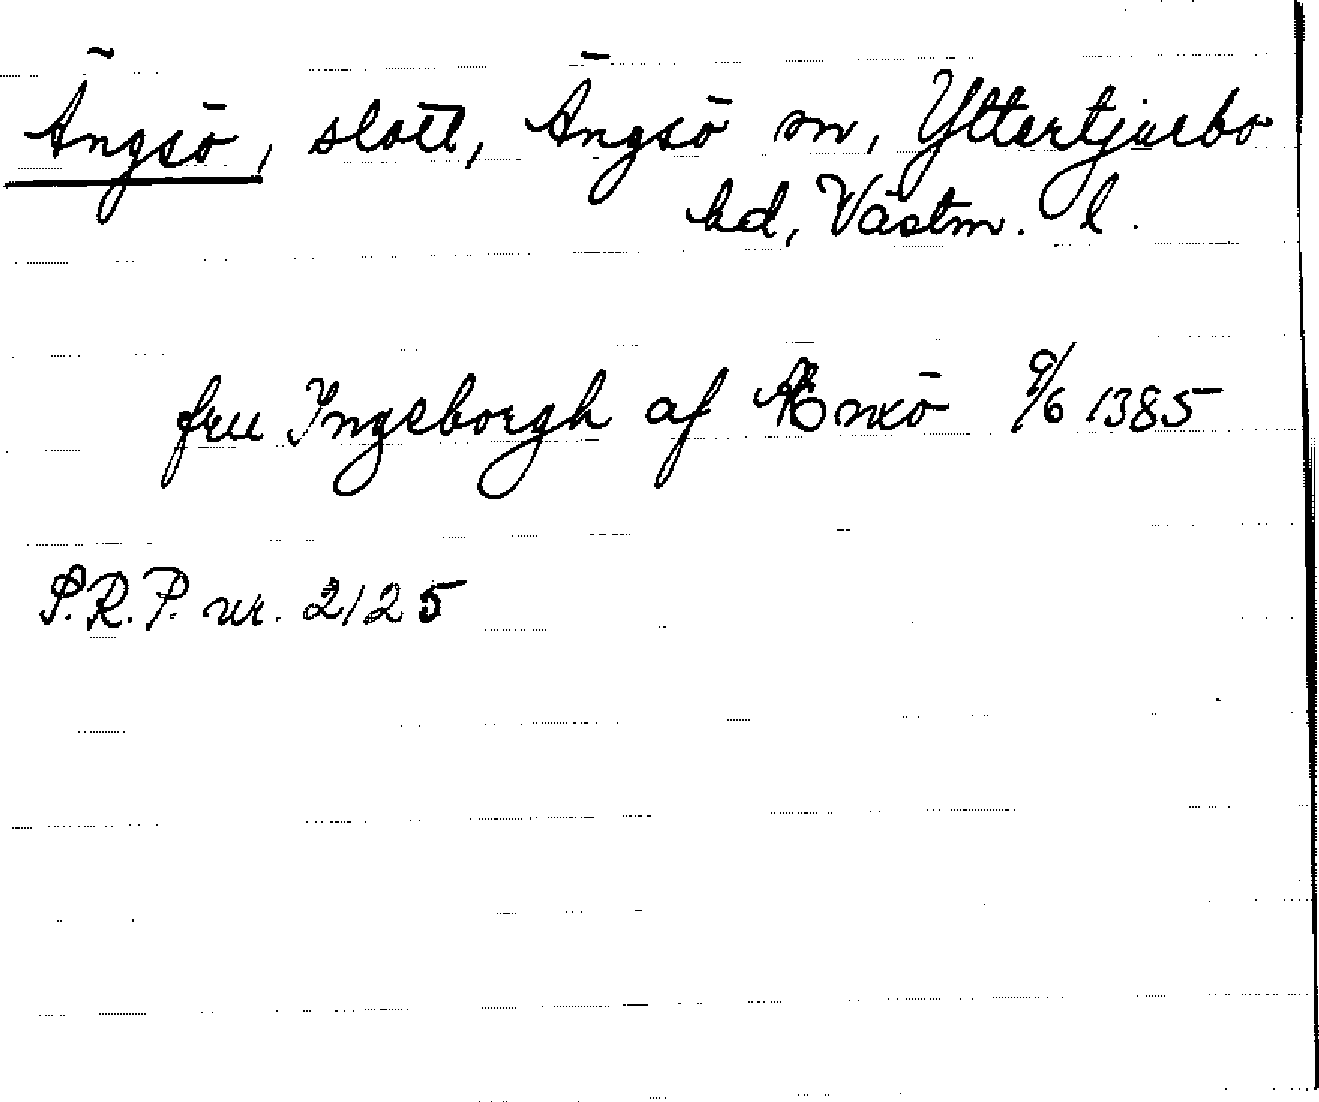 Ängsö, slott, Ängsö sn, Yttertjurbo
hd, Västm. l.
fru Ingeborgh af Ænxö 9/6 1385
S.R.P. nr. 2125